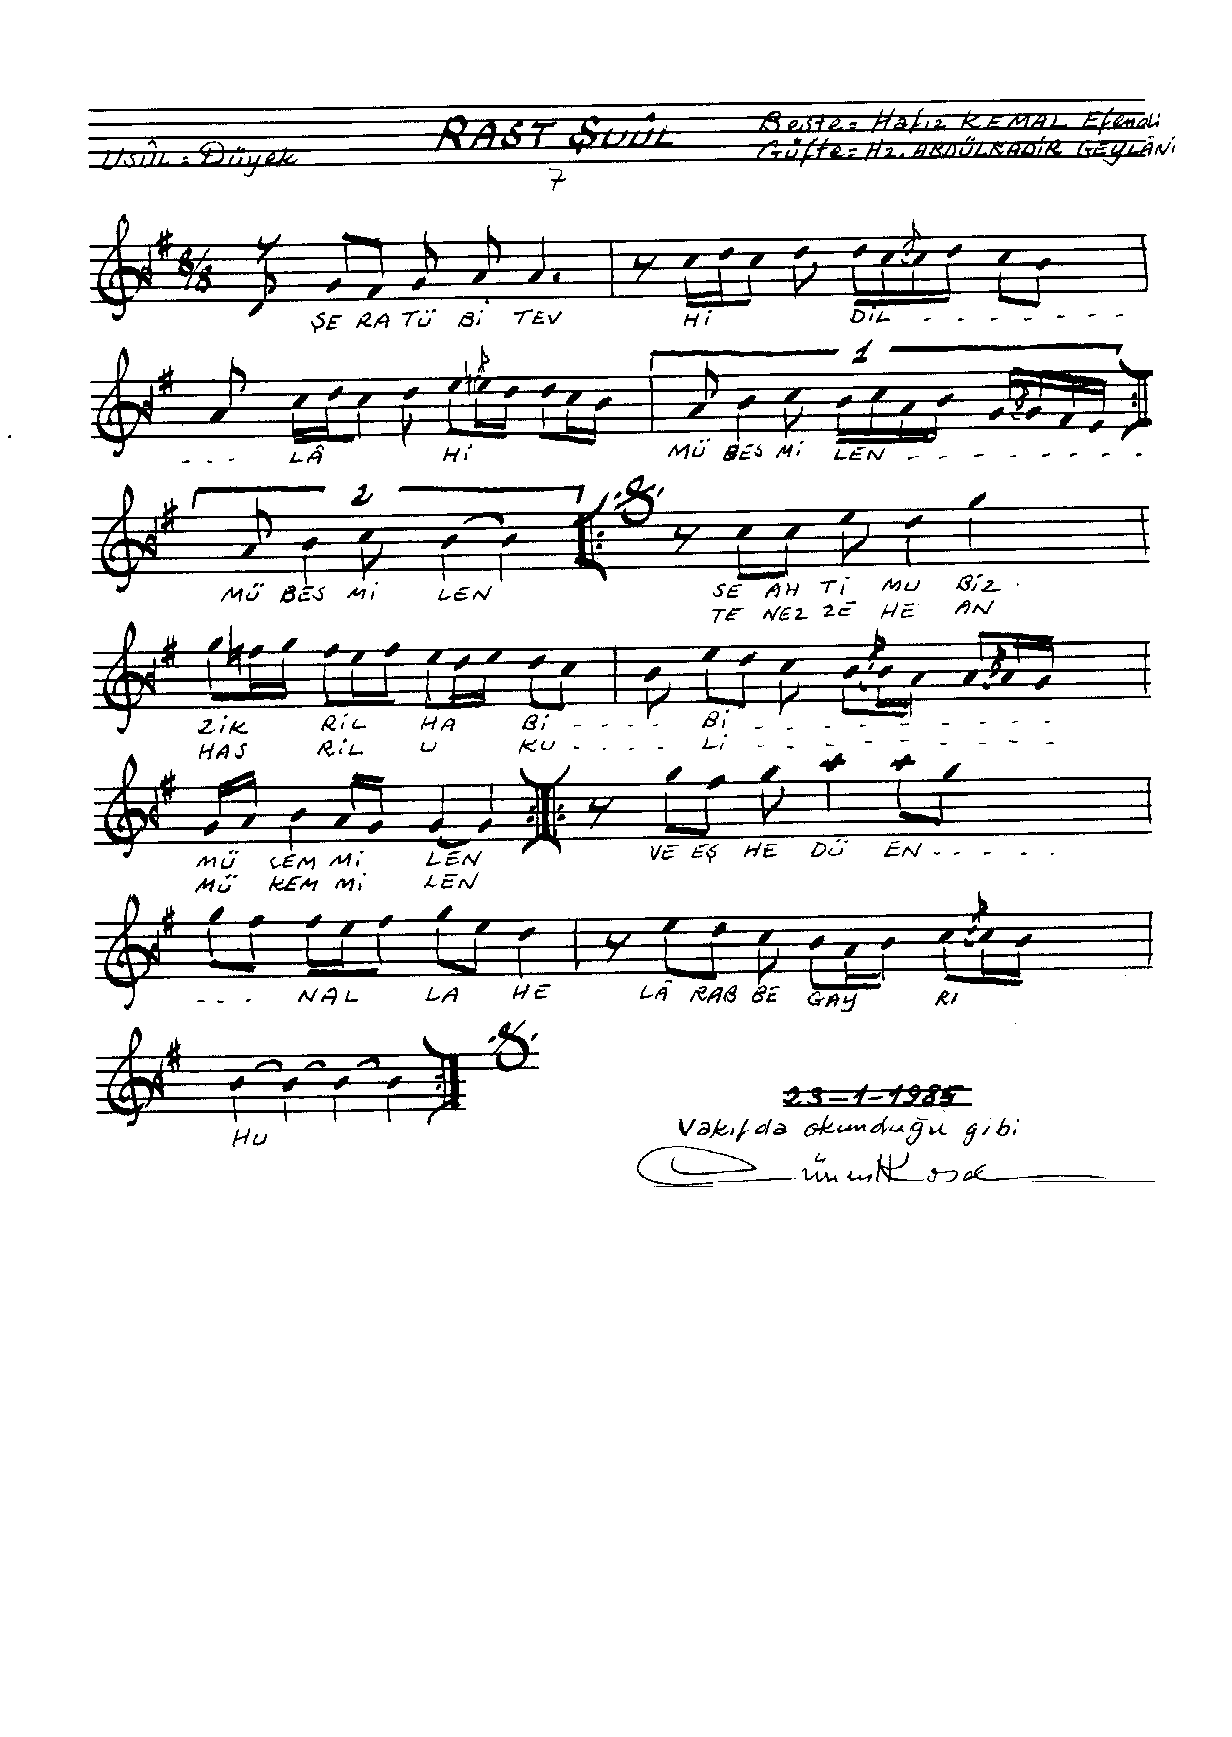 RAST ŞUÛL
Beste = Hafız KEMAL Efendi
Usûl = Düyek
Güfte = Hz. ABDÜLKADİR GEYLÂNİ
7
8/8
ŞE RA TÜ Bİ TEV Hİ DİL - - - - - - -
1
- - - LÂ Hİ MÜ BES Mİ LEN - - - - - - - -
2
MÜ BES Mİ LEN SE AH Tİ MU BİZ
TE NEZ ZE HE AN
ZİK RİL HA Bİ - - - - Bİ - - - - - - - - - -
HAS RİL U KU - - - - Lİ - - - - - - - - - -
MÜ CEM Mİ LEN VE EŞ HE DÜ EN - - - - -
MÜ KEM Mİ LEN
- - - NAL LA HE LÂ RAB BE GAY RI
HU
23-1-1985
Vakıfda okunduğu gibi